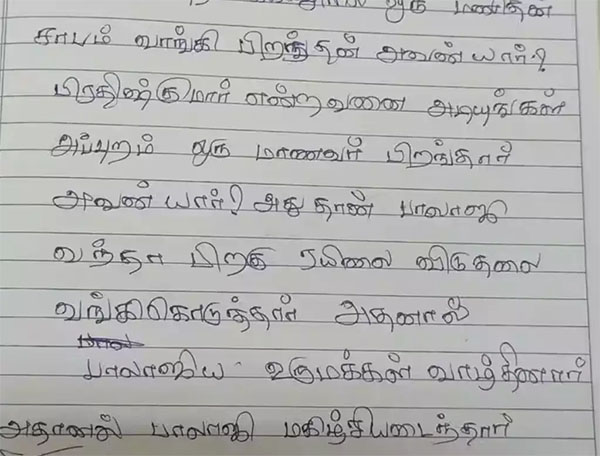 ஒரு மனிதன்
சாபம் வாங்கி பிறந்தன் அவன் யார்?
பிரதிஷ்குமார் என்றவனை அடியுங்கள்
அப்புறம் ஒரு மாணவர் பிறந்தார்
அவன் யார்? அது தான் பாலாஜி
வந்தா பிறகு ரயிலை விடுதலை
வங்கிகொடுந்தார் அதனால்
பாலாஜிய ஊருமக்கள் வாழ்தினார்
அதானல் பாலாஜி மகிழ்சியடைந்தார்